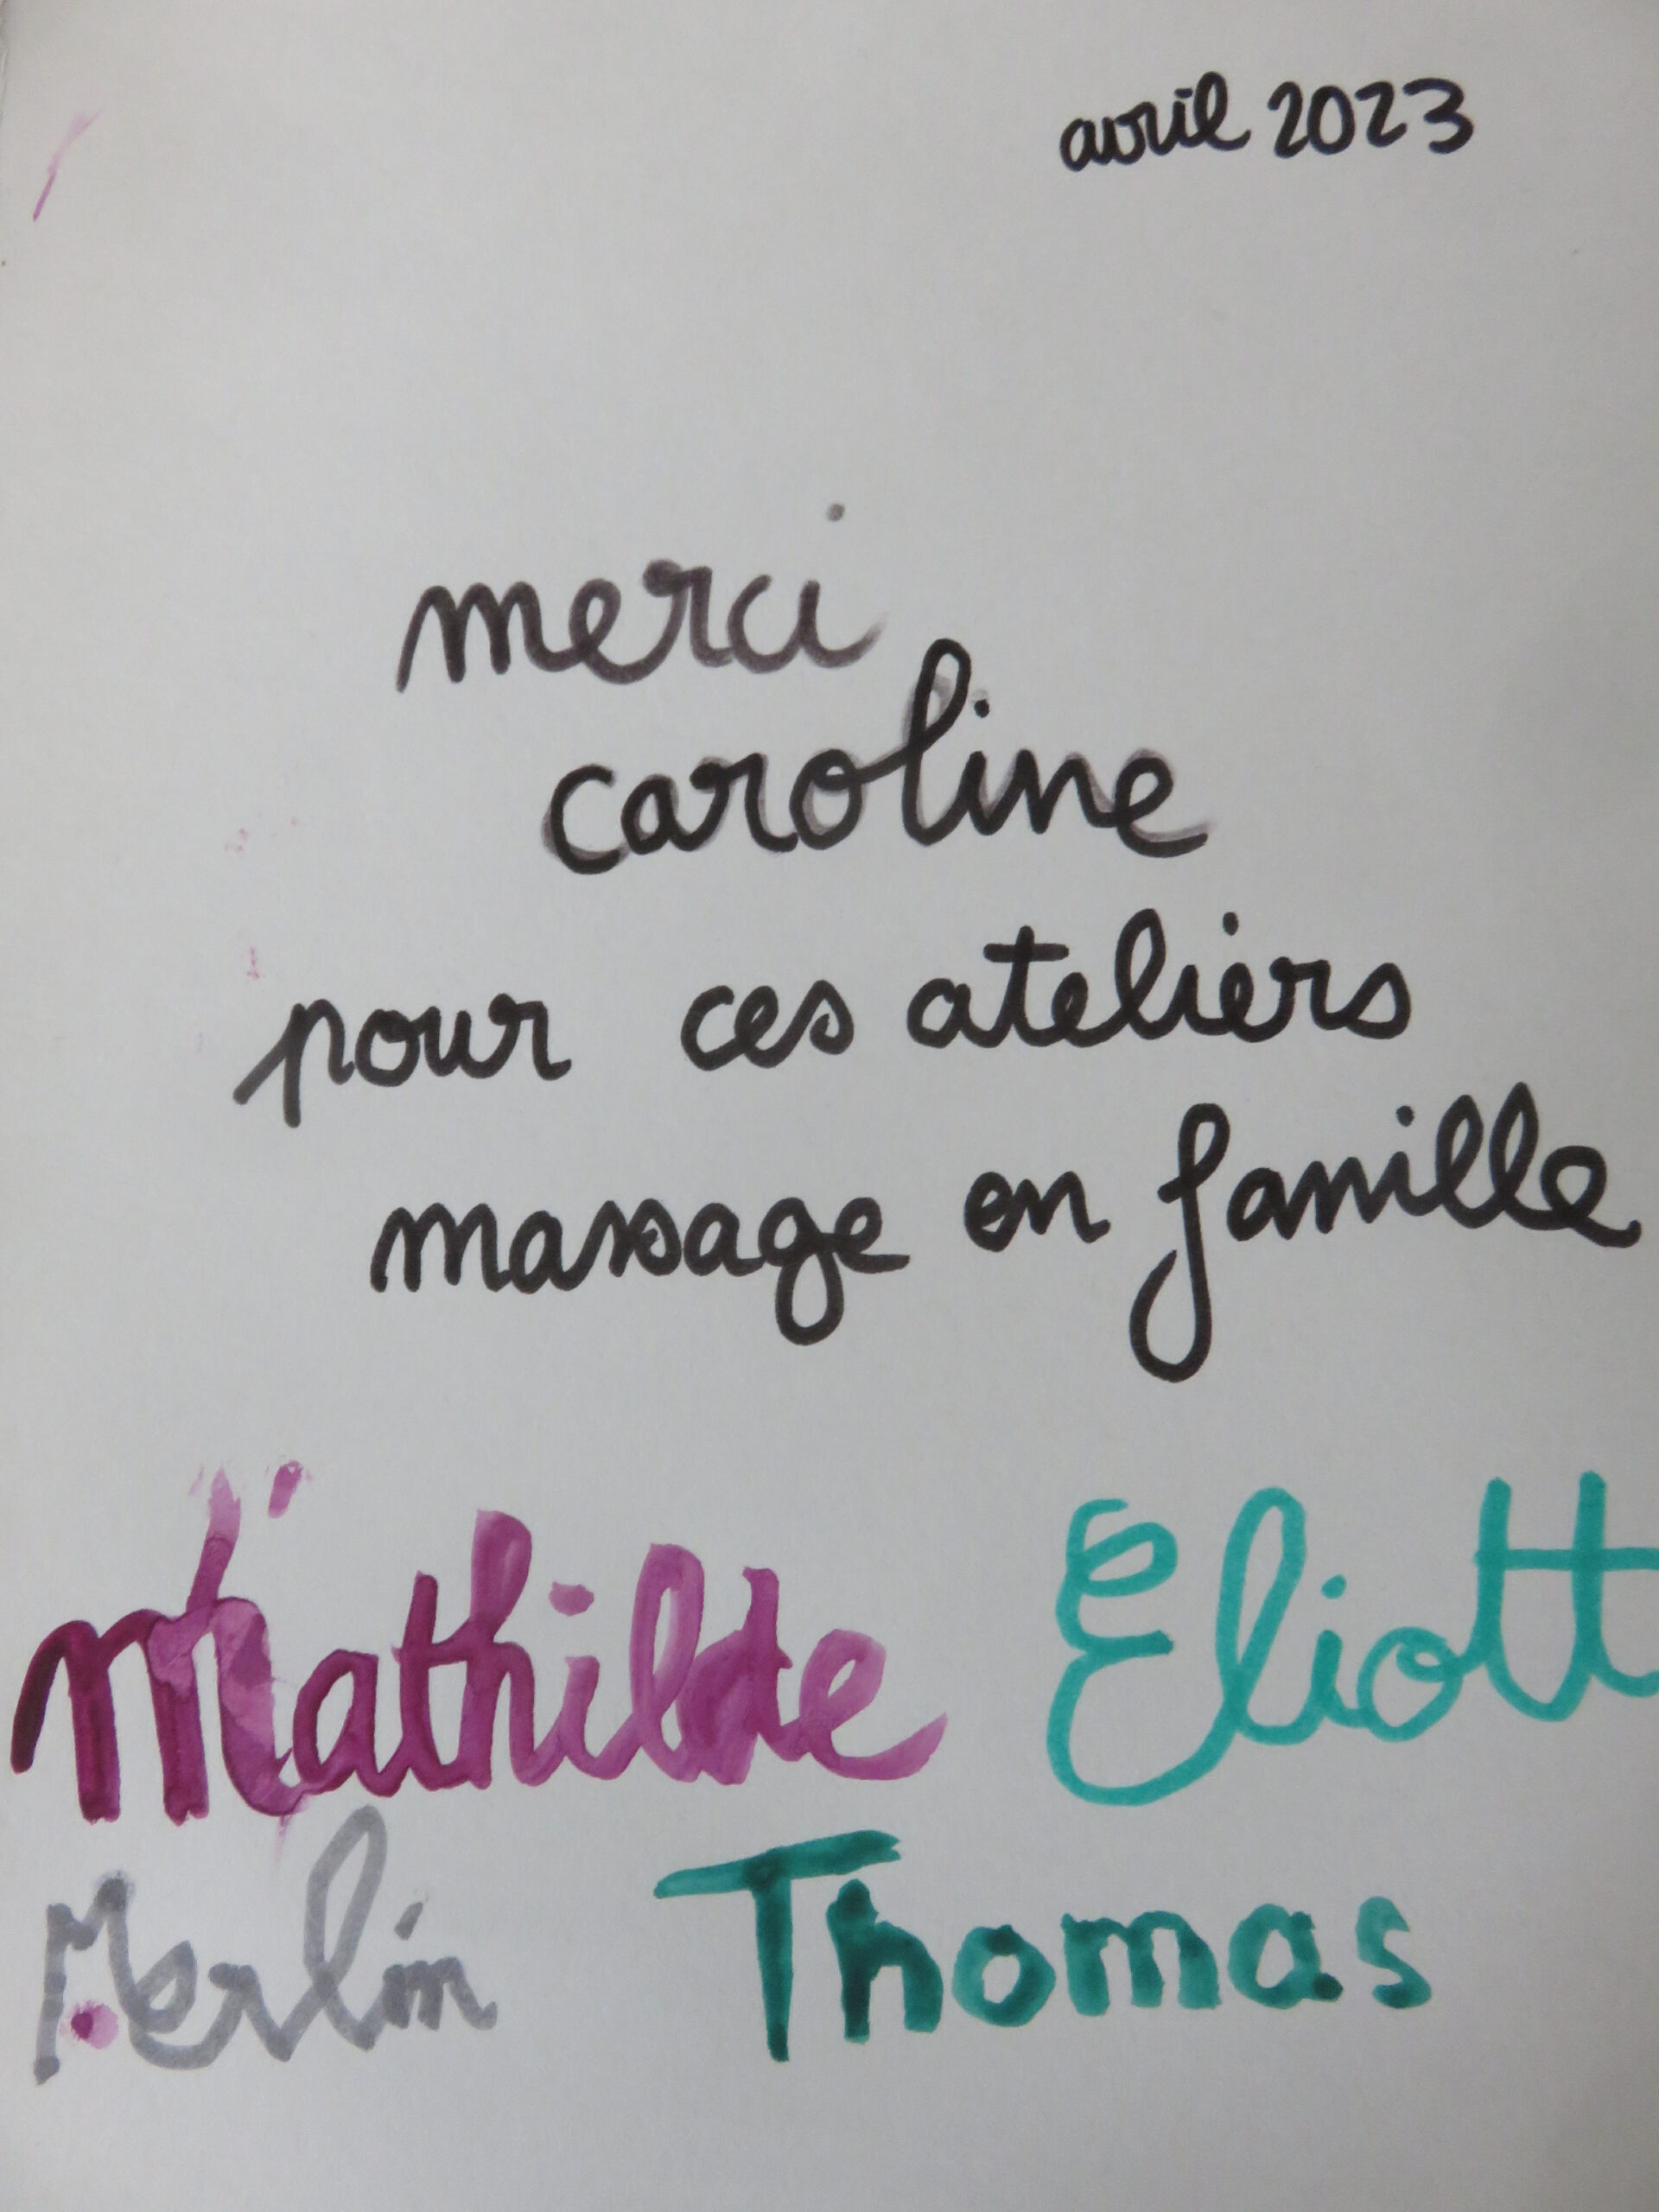 avril 2023
merci
caroline
pour ces ateliers
massage en famille
Mathilde Eliott
Merlin Thomas